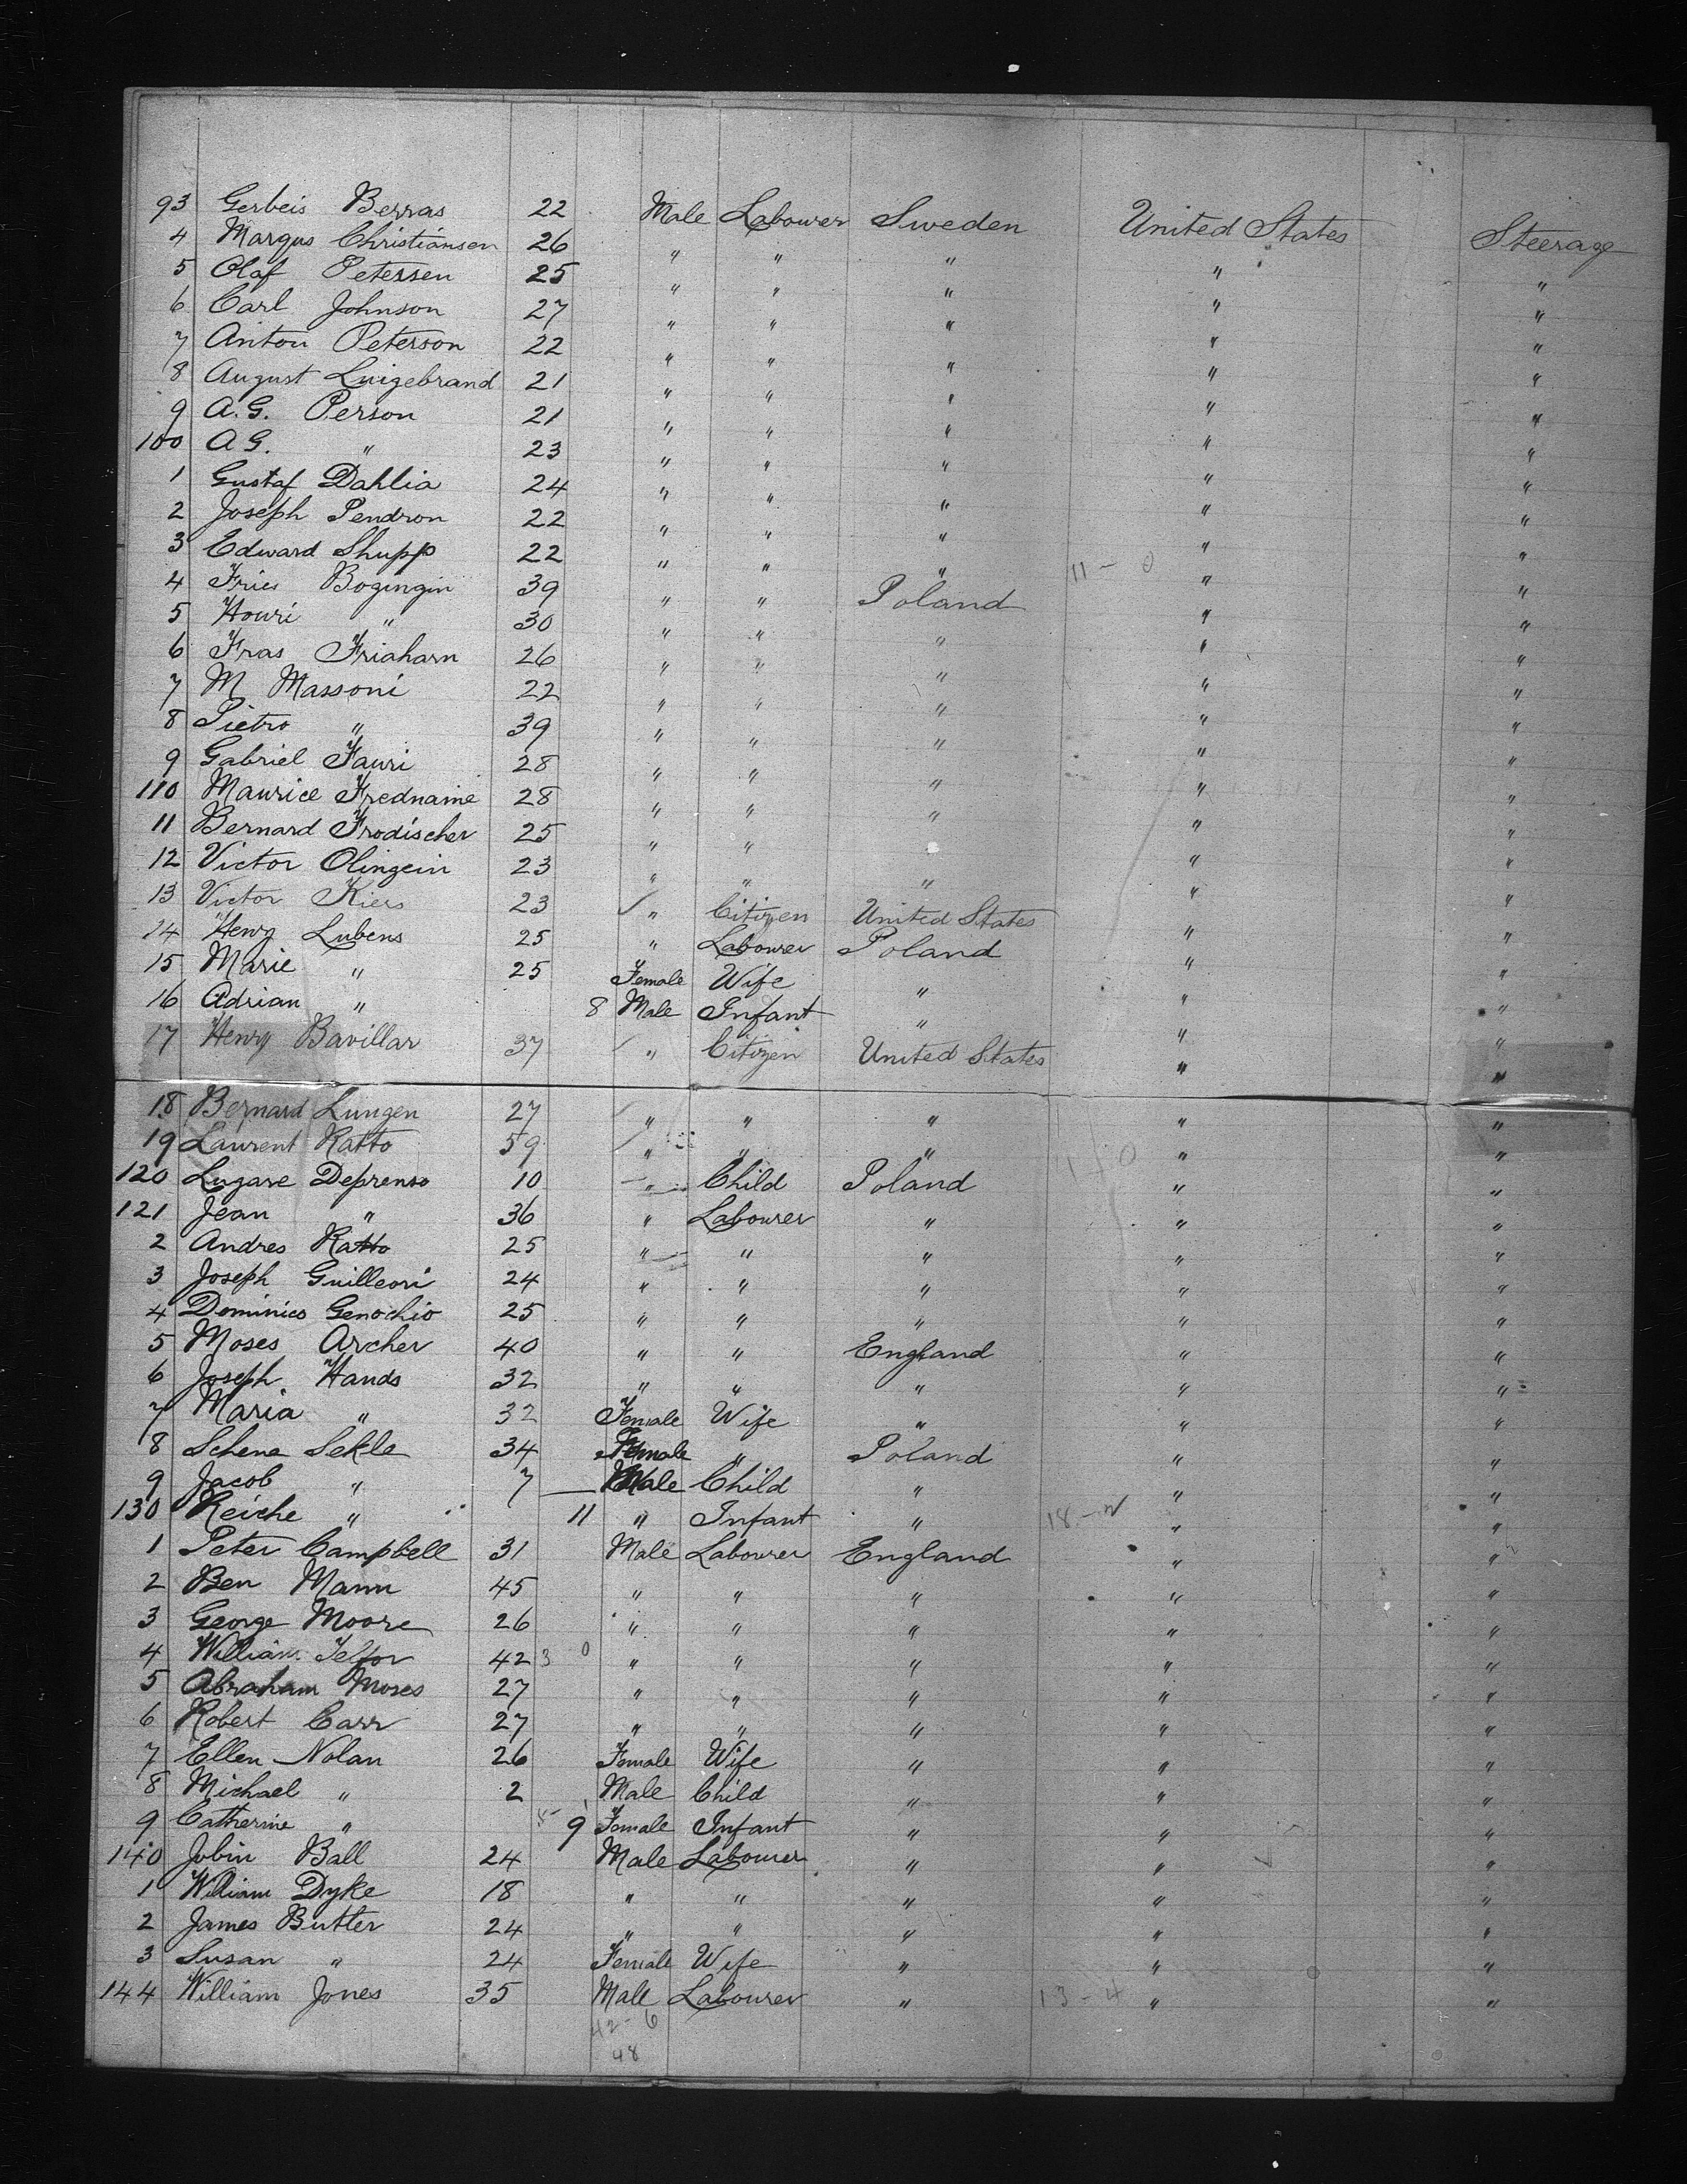 93 Gerbeis Berras 22 Male Labourer Sweden United States Steerage
4 Margus Christiansen 26 " " " " "
5 Olaf Petersen 25 " " " " "
6 Carl Johnson 27 " " " " "
7 Anton Peterson 22 " " " " "
8 August Luigebrand 21 " " " " "
9 A.G. Person 21 " " " " "
100 A G. " 23 " " " " "
1 Gustaf Dahlia 24 " " " " "
2 Joseph Pendron 22 " " " " "
3 Edward Shupp 22 " " " 11 - 0 " "
4 Fries Bogingin 39 " " Poland " "
5 Houri " 30 " " " " "
6 Fras Friaharn 26 " " " " "
7 M Massoni 22 " " " " "
8 Pietro " 39 " " " " "
9 Gabriel Fauri 28 " " " " "
110 Maurice Frednaine 28 " " " " "
11 Bernard Frodischer 25 " " " "
12 Victor Olingein 23 " " " " "
13 Victor Kiers 23 " Citizen United States " "
14 Henry Lubens 25 " Labourer Poland " "
15 Marie " 25 Female Wife " " "
16 Adrian " 8 Male Infant " " "
17 Henry Bavillar 37 " Citizen United States " "
18 Bernard Lungen 27 " " " " "
19 Laurent Ratto 59 " " " " "
120 Lugare Deprenso 10 " Child Poland " "
121 Jean " 36 " Labourer " " "
2 Andres Ratto 25 " " " " "
3 Joseph Guilleori 24 " " " " "
4 Dominico Genochio 25 " " " " "
5 Moses Archer 40 " " England " "
6 Joseph Hands 32 " " " " "
7 Maria " 32 Female Wife " " "
8 Schene Sekle 34 Female " Poland " "
9 Jacob " 7 Male Child " " "
130 Reiche " 11 " Infant " 18 - " "
1 Peter Campbell 31 Male Labourer England " "
2 Ben Mann 45 " " " " "
3 George Moore 26 " " " " "
4 William Telfor 42 3 0 " " " " "
5 Abraham Moses 27 " " " " "
6 Robert Carr 27 " " " " "
7 Ellen Nolan 26 Female Wife " " "
8 Michael " 2 Male Child " " "
9 Catherine " 9 Female Infant " " "
140 Jobin Ball 24 Male Labourer " " "
1 William Dyke 18 " " " " "
2 James Butler 24 " " " " "
3 Susan " 24 Female Wife " " "
144 William Jones 35 Male Labourer " 13 - 4 " "
42 - 6
48